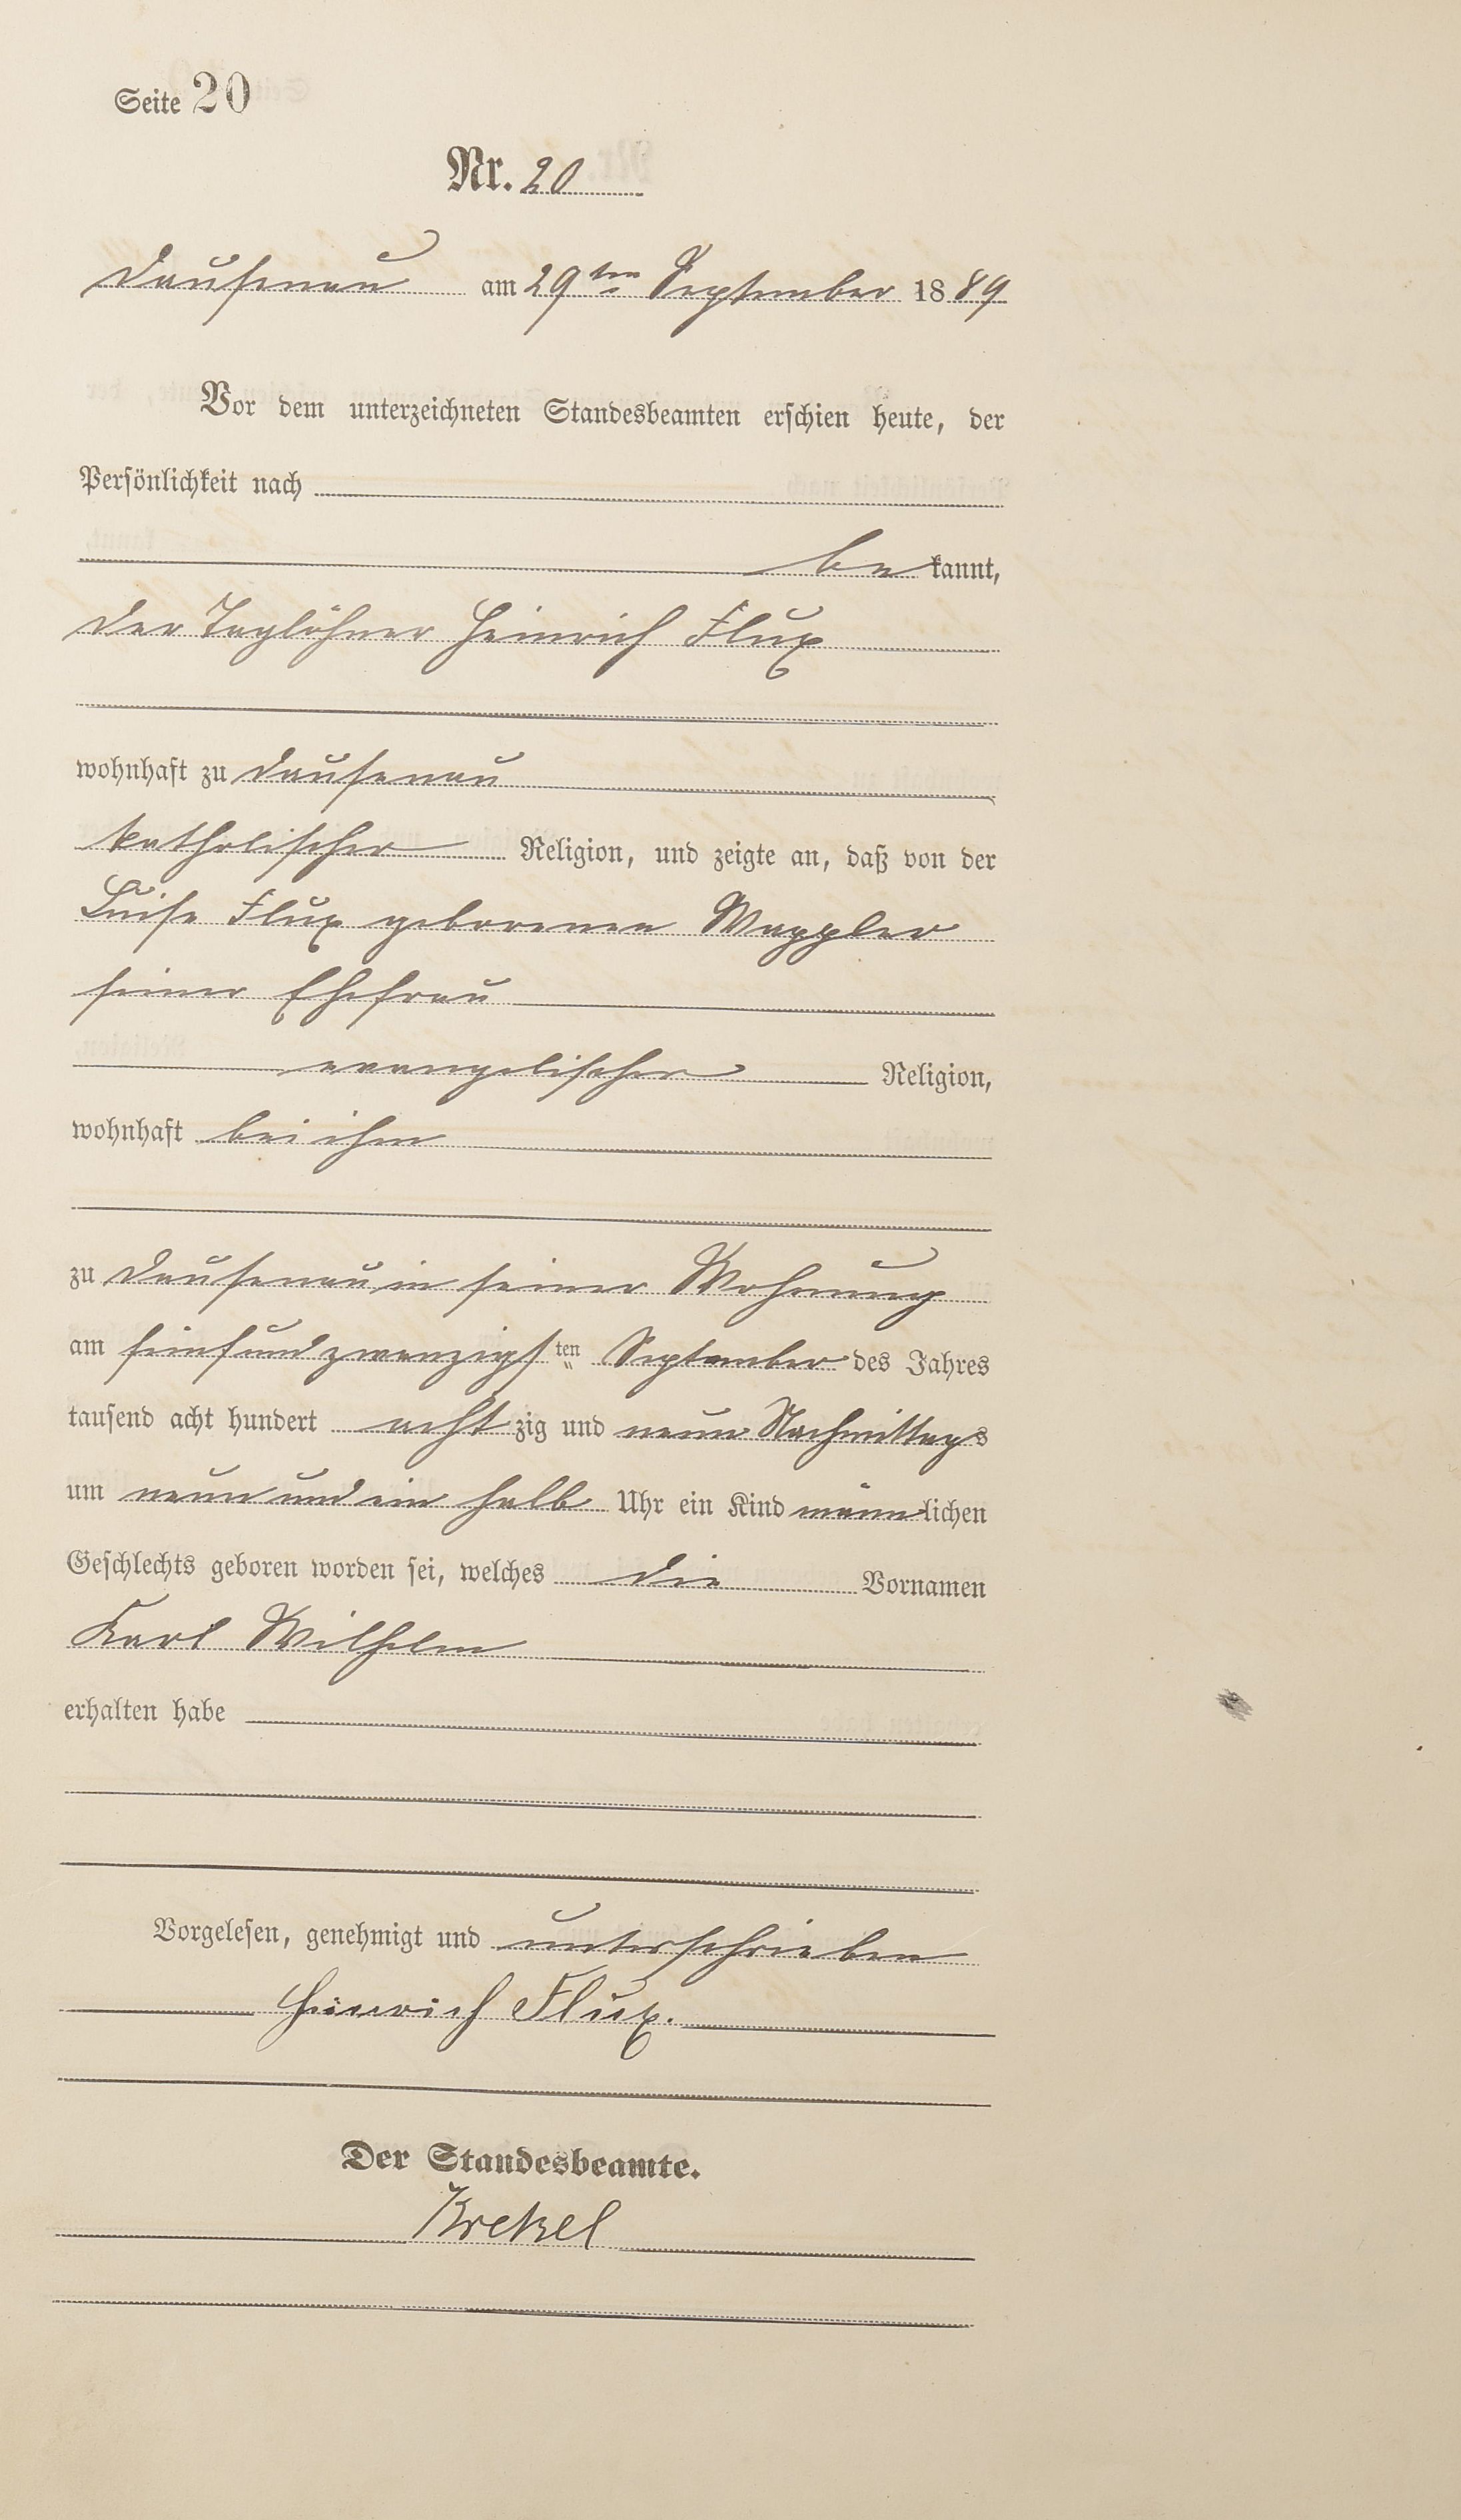 Seite 20
Nr. 20
Dausenau am 29ten September 1889
Vor dem unterzeichneten Standesbeamten erschien heute, der
Persönlichkeit nach
bekannt,
der Taglöhner Heinrich Flux
wohnhaft zu Dausenau
katholischer Religion, und zeigte an, daß von der
Luise Flux geborenen Wappler
seiner Ehefrau
evangelischer Religion,
wohnhaft bei ihm
zu Dausenau in seiner Wohnung
am fünfundzwanzigsten September des Jahres
tausend acht hundert achtzig und neun Nachmittags
um neun und ein halb Uhr ein Kind männlichen
Geschlechts geboren worden sei, welches die Vornamen
Karl Wilhelm
erhalten habe
Vorgelesen, genehmigt und unterschrieben
Heinrich Flux.
Der Standesbeamte.
Krekel